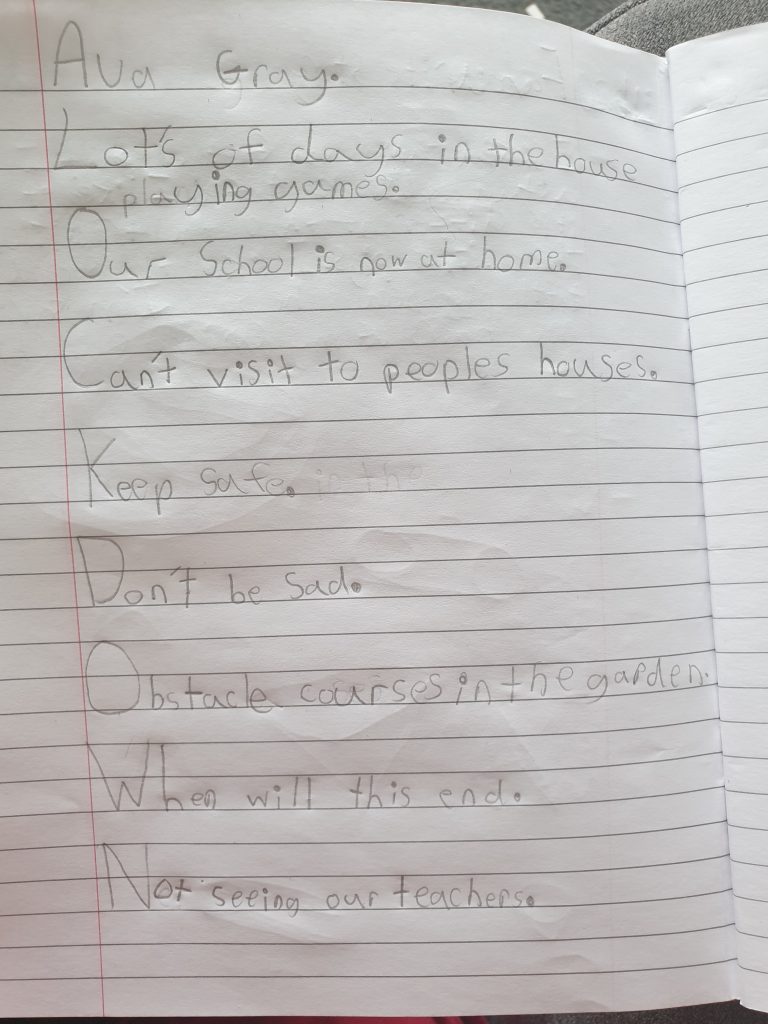 Ava Gray.
Lot's of days in the house
playing games.
Our School is now at home.
Can't visit to peoples houses.
Keep safe. in the
Don't be Sad.
Obstacle courses in the garden.
When will this end.
Not seeing our teachers.